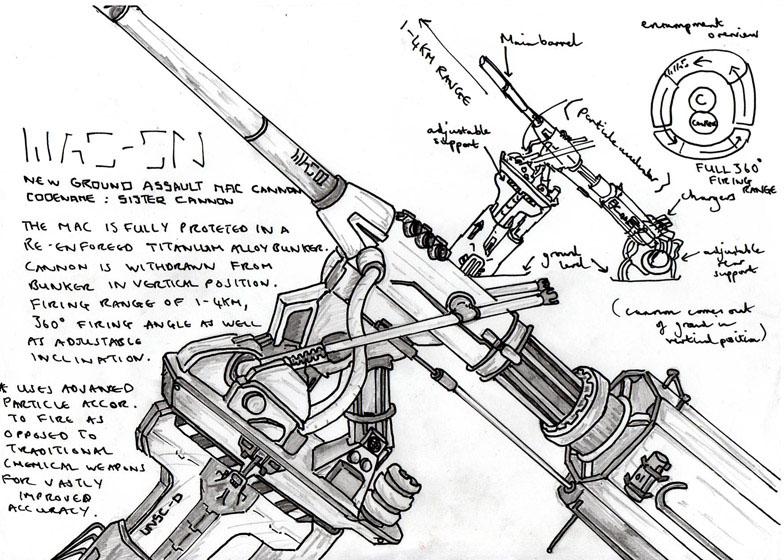 NEW GROUND ASSAULT MAC CANNON
CODENAME : SISTER CANNON
THE MAC IS FULLY PROTETED IN A
RE-ENFORCED TITANIUM ALLOY BUNKER.
CANNON IS WITHDRAWN FROM
BUNKER IN VERTICAL POSITION.
FIRING RANGE OF 1-4KM,
360° FIRING ANGLE AS WELL
AS ADJUSTABLE
INCLINATION.
* USES ADVANED
PARTICLE ACCOR.
TO FIRE AS
OPPOSED TO
TRADITIONAL
CHEMICAL WEAPONS
FOR VASTLY
IMPROVED
ACCURACY.
UNSC-D
1-4KM RANGE
Main barrel
adjustable
support
(Particle accelerator)
chargers
adjustable
rear
support
ground
level
(cannon comes out
of ground in
vertical position)
encampment
overview
C
FULL 360°
FIRING
RANGE